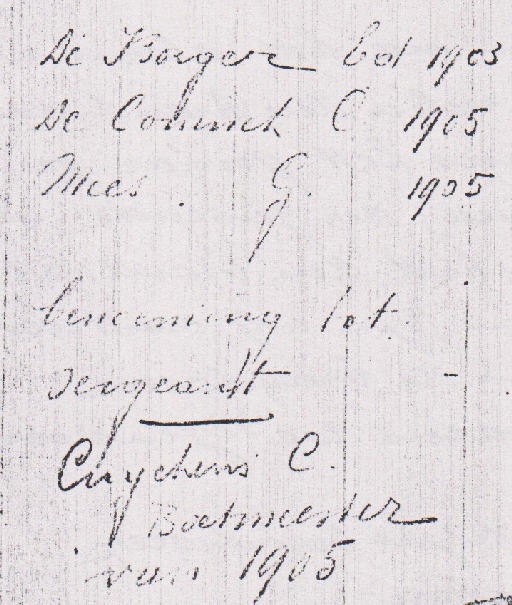 De Borger Ed 1903
De Coninck C 1905
Mees. G. 1905
benoeming tot
sergeant
Cuyckens C.
Boetmeester
van 1905